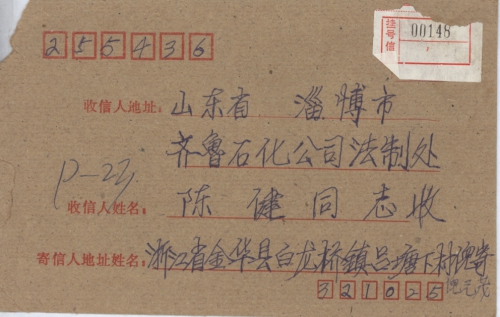 255436
挂号信 00148
收信人地址:山东省 淄博市
齐鲁石化公司法制处
P-23
收信人姓名:陈健同志收
寄信人地址姓名:浙江省金华县白龙桥镇吕塘下村倪寄
321025